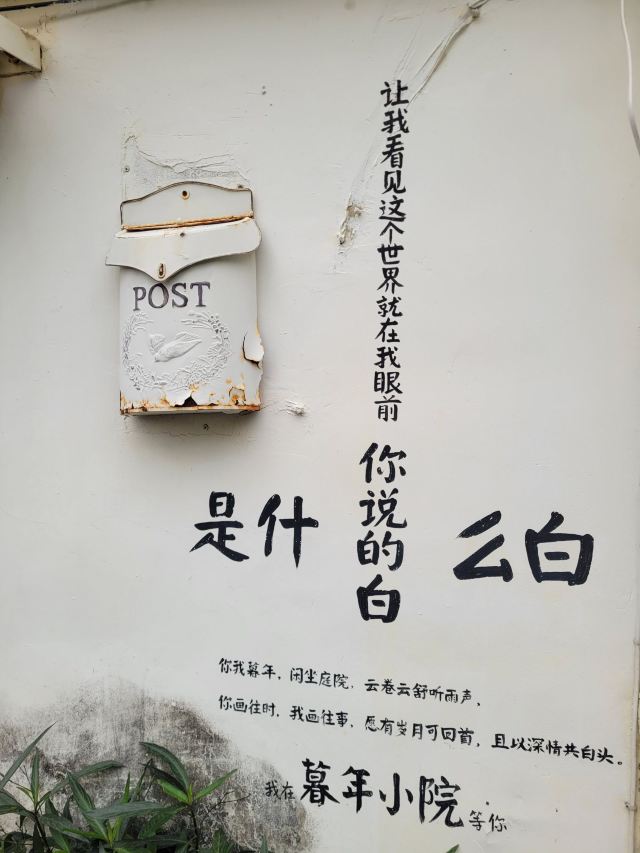 让我看见这个世界就在我眼前
POST
你说的白
是什
么白
你我暮年，闲坐庭院，云卷云舒听雨声，
你画往时，我画往事，愿有岁月可回首，且以深情共白头。
我在暮年小院等你